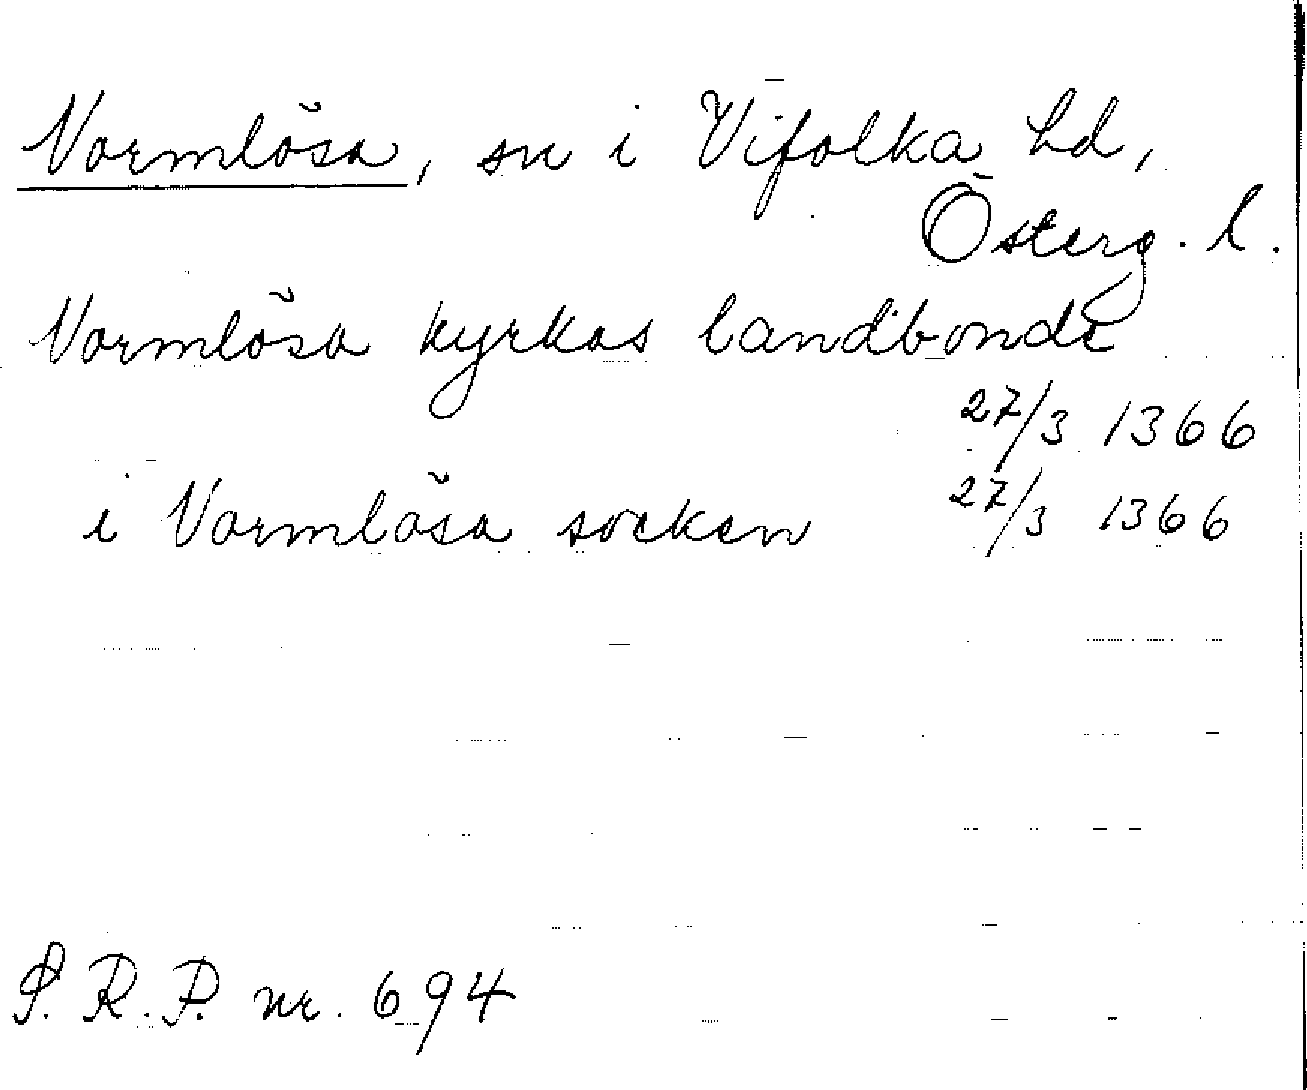 Normlösa, sn i Vifolka hd,
Österg. l.
Normlösa kyrkas landbonde
27/3 1366
i Normlösa socken 27/3 1366
S. R. P. nr. 694